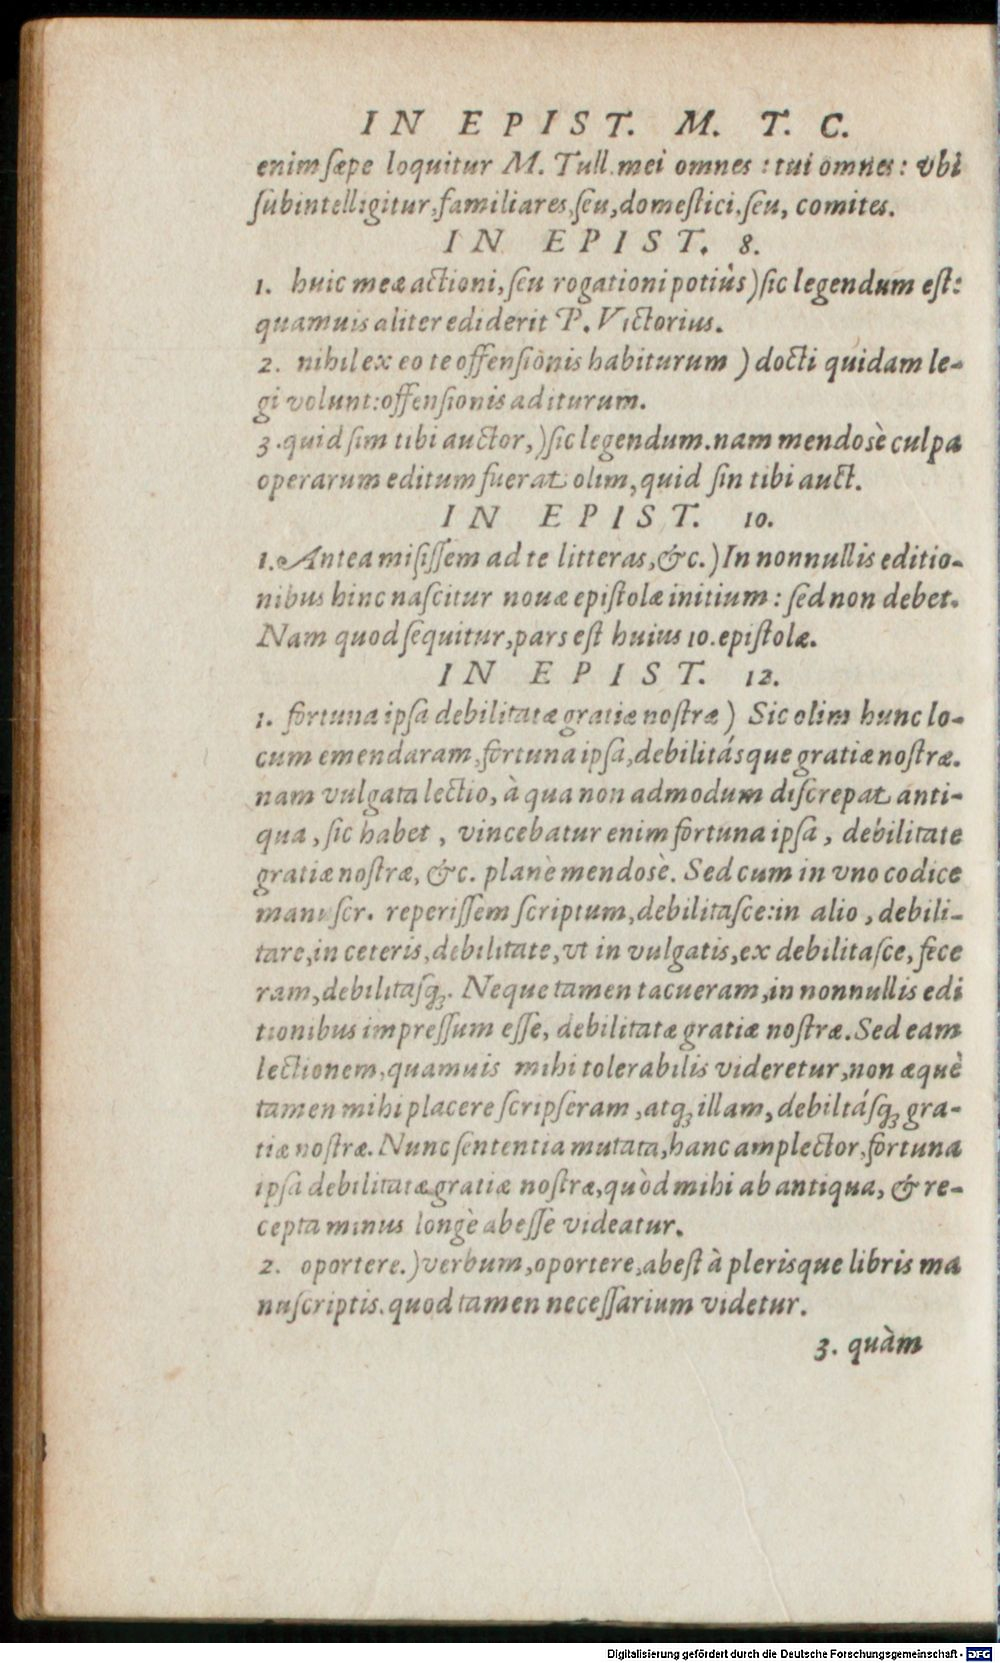 IN EPIST. M. T. C.
enim sæpe loquitur M. Tull. mei omnes : tui omnes : vbi
subintelligitur, familiares, seu, domestici, seu, comites.
IN EPIST. 8.
1. huic meæ actioni, seu rogationi potiùs) sic legendum est:
quamuis aliter ediderit P. Victorius.
2. nihil ex eo te offensionis habiturum ) docti quidam le-
gi volunt: offensionis aditurum.
3. quid sim tibi auctor,) sic legendum. nam mendosè culpa
operarum editum fuerat olim, quid sin tibi auct.
IN EPIST. 10.
1. Antea misissem ad te litteras, &c.) In nonnullis editio-
nibus hinc nascitur nouæ epistolæ initium : sed non debet.
Nam quod sequitur, pars est huius 10. epistolæ.
IN EPIST. 12.
1. fortuna ipsa debilitatæ gratiæ nostræ) Sic olim hunc lo-
cum emendaram, fortuna ipsa, debilitásque gratiæ nostræ.
nam vulgata lectio, à qua non admodum discrepat anti-
qua, sic habet, vincebatur enim fortuna ipsa, debilitate
gratiæ nostræ, &c. planè mendosè. Sed cum in vno codice
manuscr. reperissem scriptum, debilitasce: in alio, debili-
tare, in ceteris, debilitate, vt in vulgatis, ex debilitasce, fece
ram, debilitasq́;. Neque tamen tacueram, in nonnullis edi
tionibus impressum esse, debilitatæ gratiæ nostræ. Sed eam
lectionem, quamuis mihi tolerabilis videretur, non æquè
tamen mihi placere scripseram, atq; illam, debiltásq; gra-
tiæ nostræ. Nunc sententia mutata, hanc amplector, fortuna
ipsa debilitatæ gratiæ nostræ, quòd mihi ab antiqua, & re-
cepta minus longè abesse videatur.
2. oportere.) verbum, oportere, abest à plerisque libris ma
nuscriptis. quod tamen necessarium videtur.
3. quàm
Digitalisierung gefördert durch die Deutsche Forschungsgemeinschaft - DFG